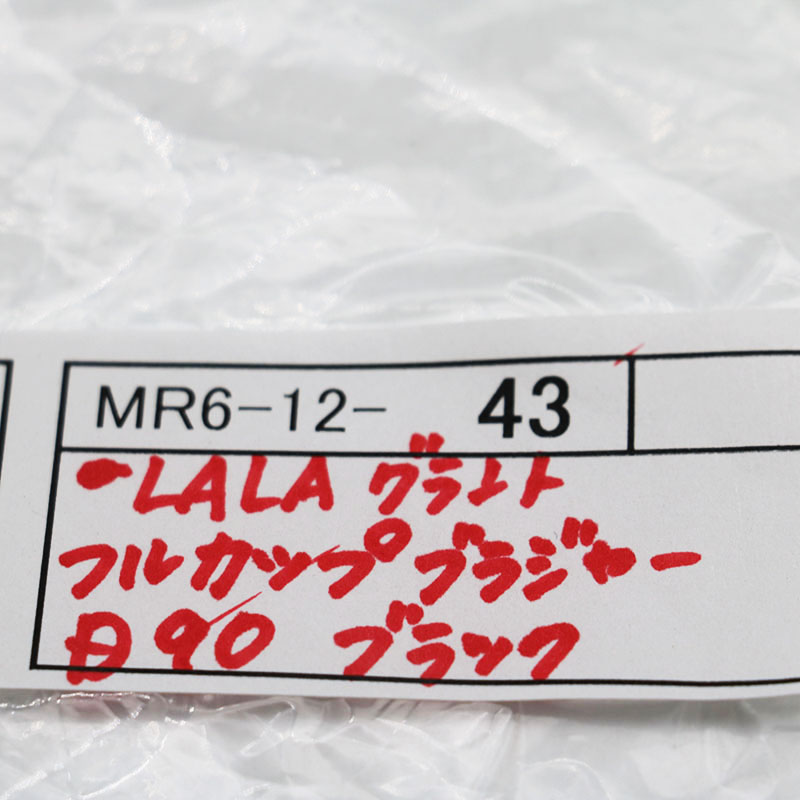 MR6-12- 43
LALA グラエト
フルカップブラジャー
D90 ブラック